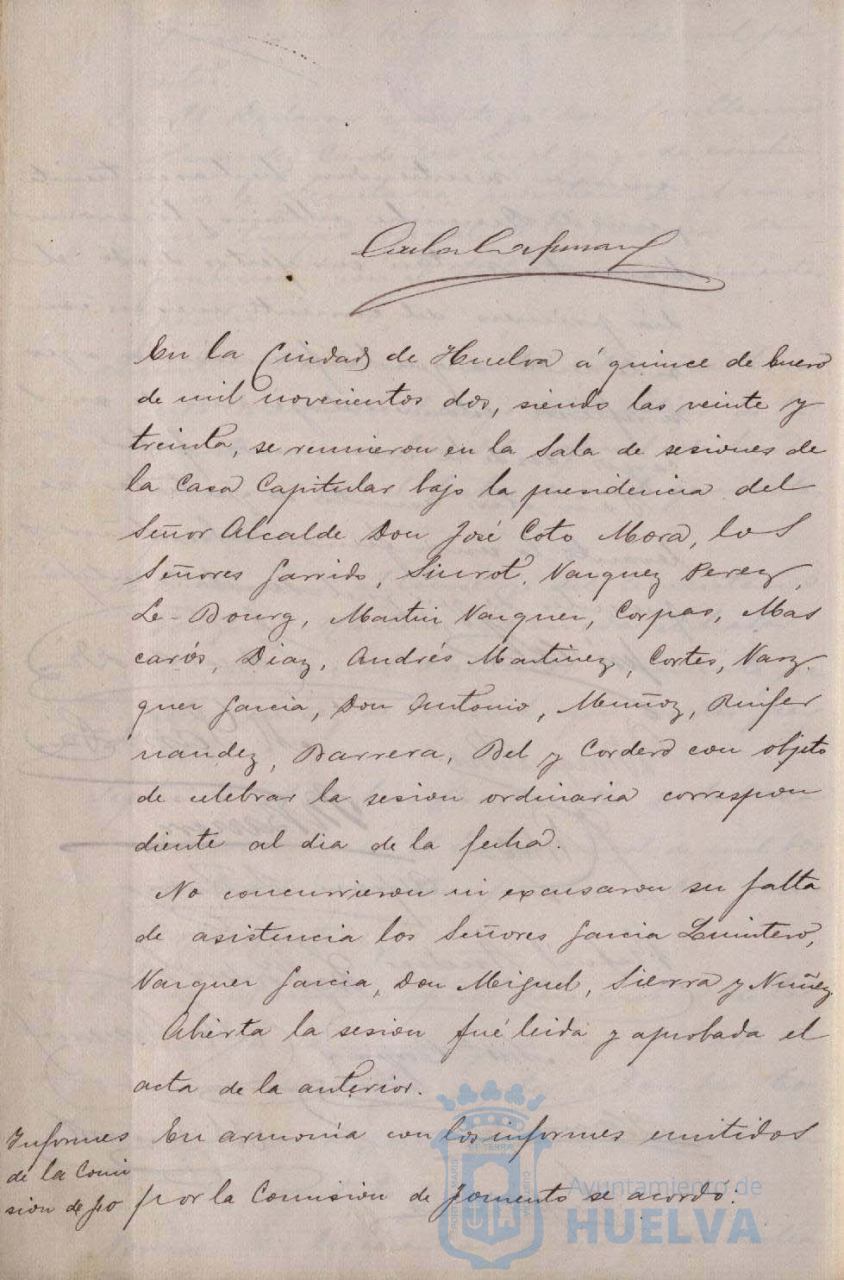 En la Ciudad de Huelva á quince de Enero
de mil novecientos dos, siendo las veinte y
treinta, se reunieron en la Sala de sesiones de
la Casa Capitular bajo la presidencia del
Señor Alcalde Don José Coto Mora, los
Señores Garrido, Siurot, Vazquez Perez,
Le-Bourg, Martin Vazquez, Corpas, Mas
carós, Diaz, Andrés Martinez, Cortes, Vaz
quez Garcia, Don Antonio, Muñoz, Ruifer
nandez, Barrera, Bel y Cordero con objeto
de celebrar la sesion ordinaria correspon
diente al dia de la fecha.
No concurrieron ni excusaron su falta
de asistencia los Señores Garcia Quintero,
Vazquez Garcia, Don Miguel, Sierra y Nuñez
Abierta la sesion fué leida y aprobada el
acta de la anterior.
Informes
de la Comi
sion de fo
En armonia con los informes emitidos
por la Comision de fomento se acordó:
Ayuntamiento de
HUELVA